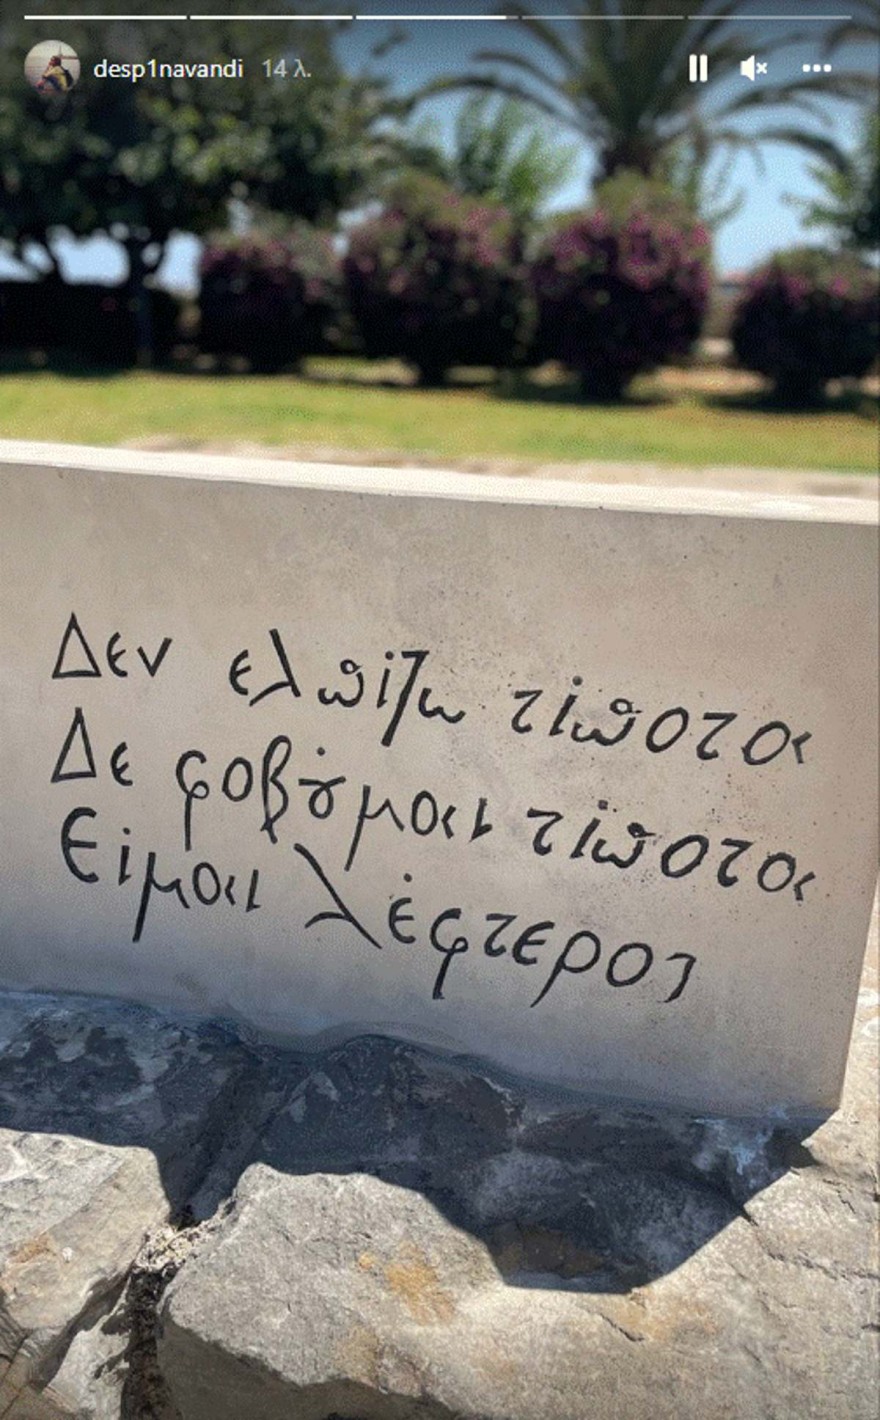 desp1navandi 14 λ.
Δεν ελπίζω τίποτα
Δε φοβȣ́μαι τίποτα
Είμαι λέφτερος